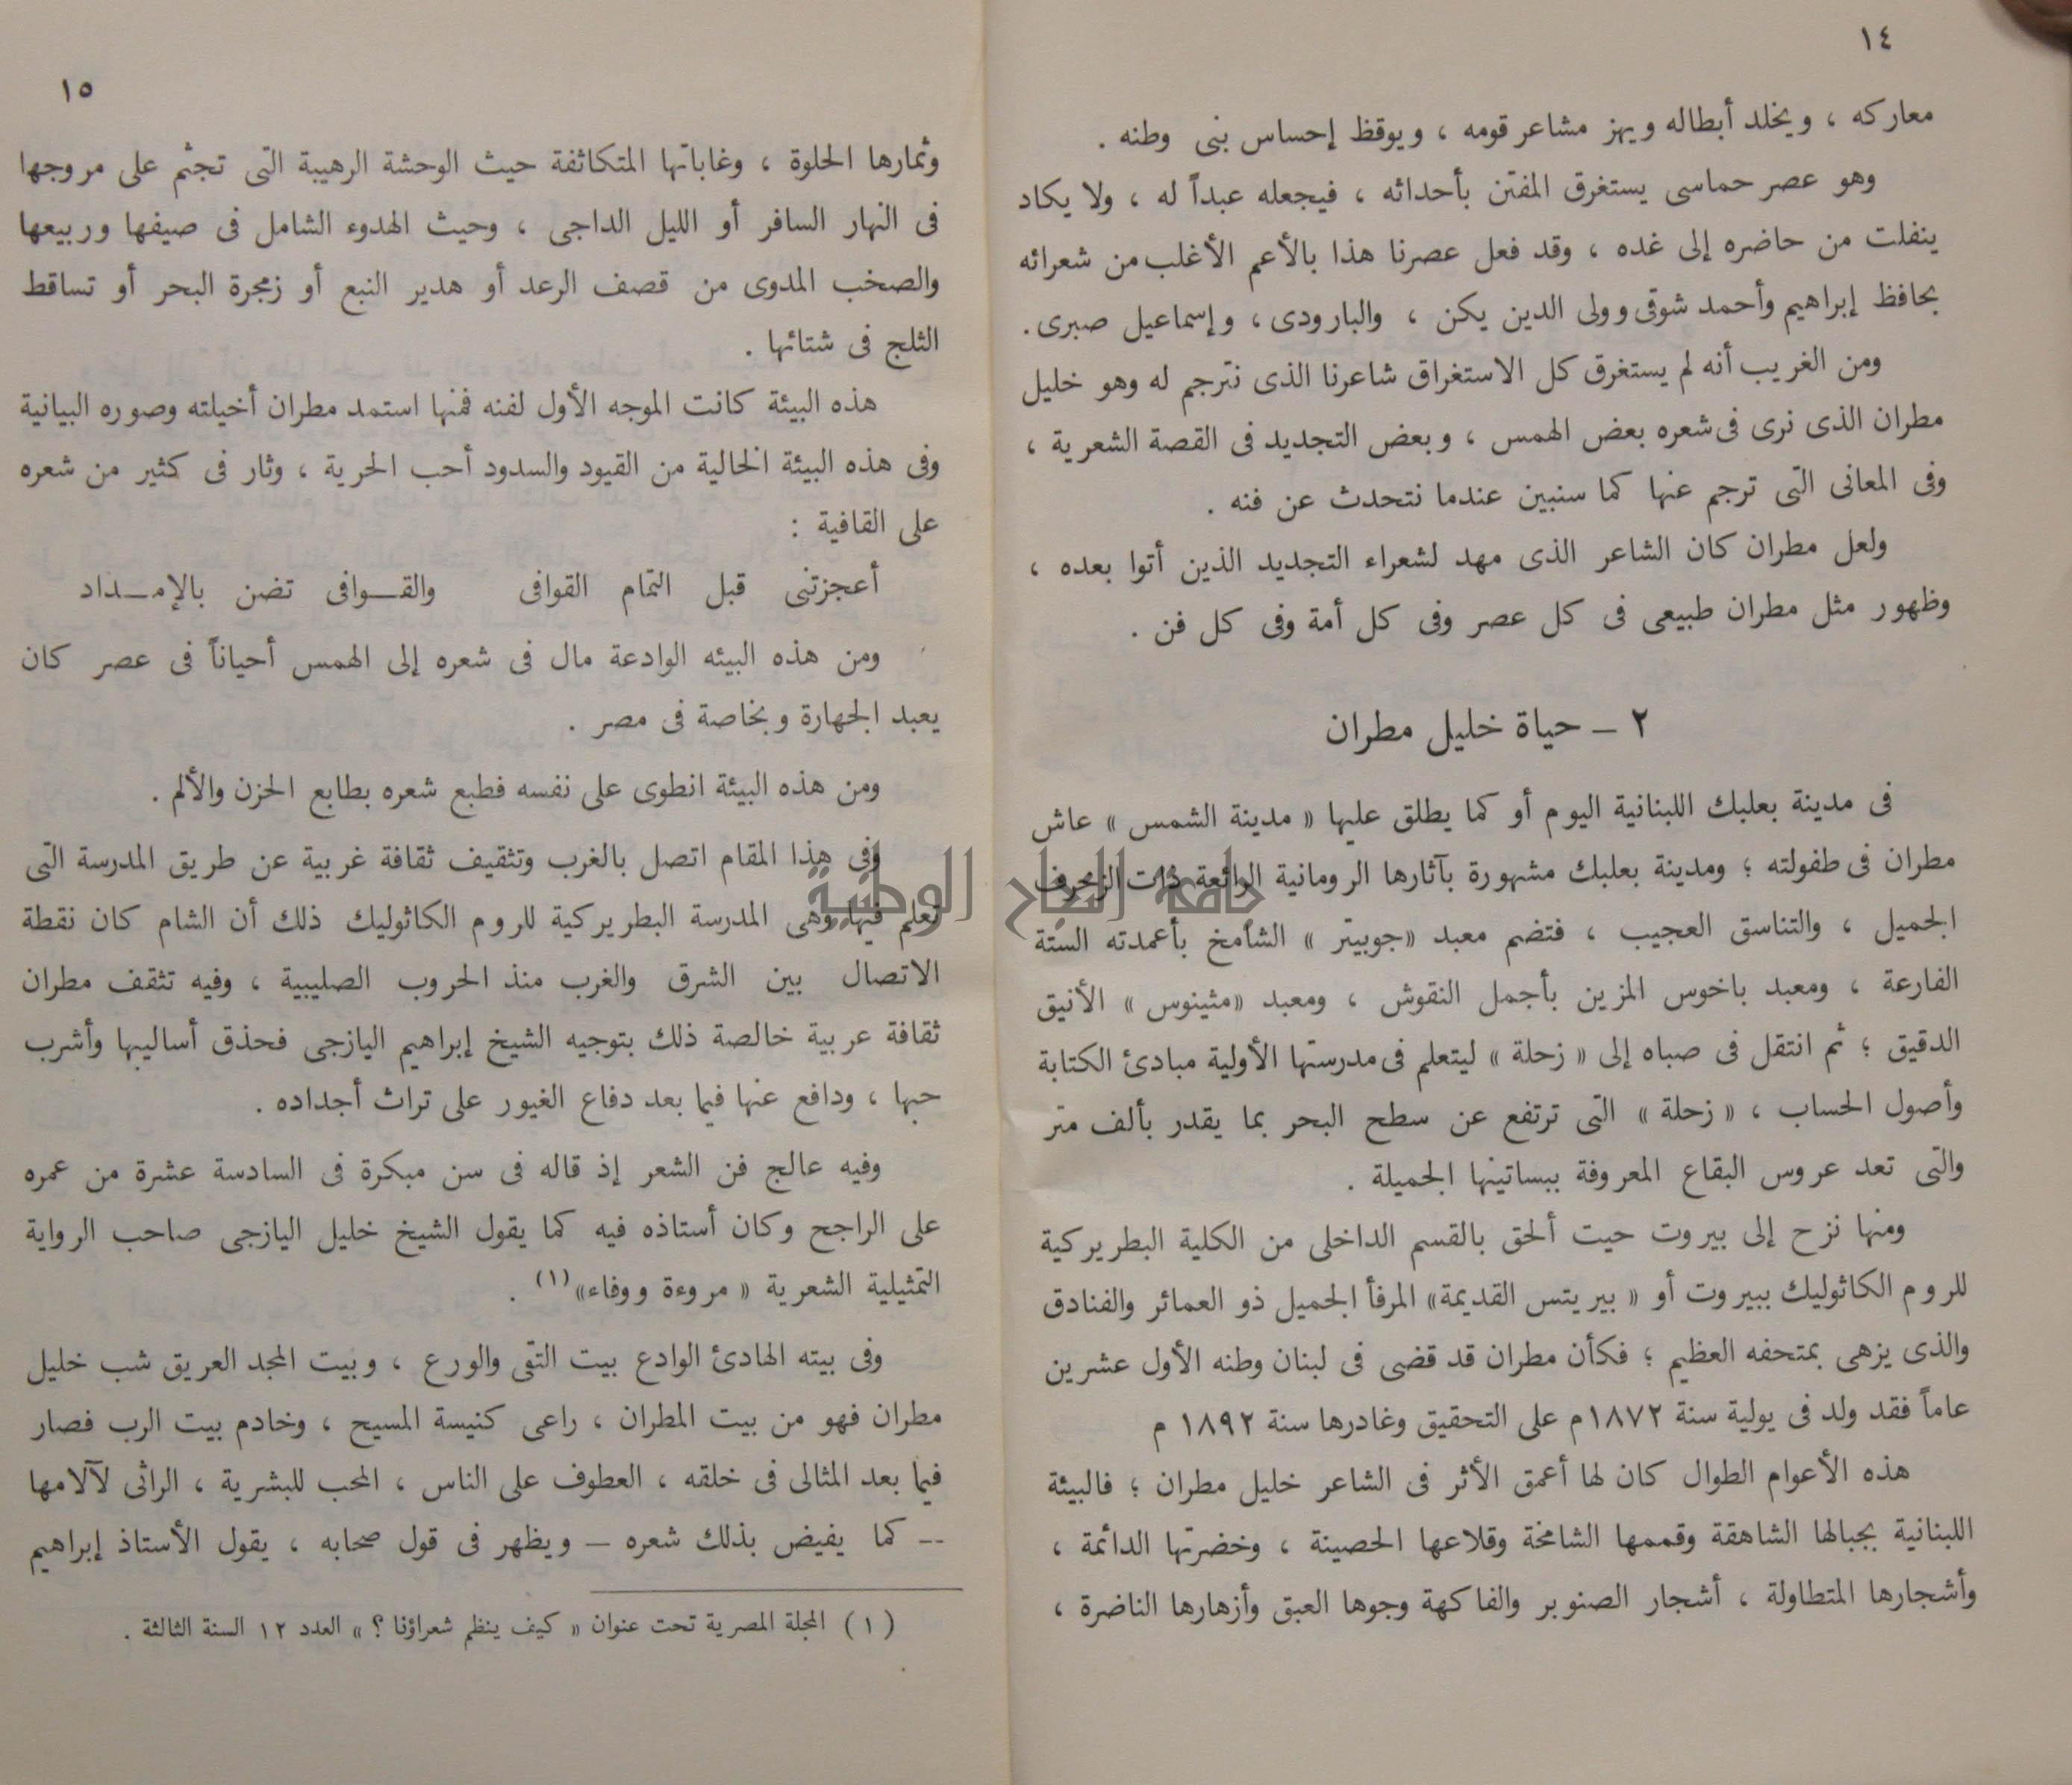 ١٤
معاركه ، ويخلد أبطاله ويهز مشاعر قومه ، ويوقظ إحساس بنى وطنه .
وهو عصر حماسى يستغرق المفتن بأحداثه ، فيجعله عبداً له ، ولا يكاد
ينفلت من حاضره إلى غده ، وقد فعل عصرنا هذا بالأعم الأغلب من شعرائه
بحافظ إبراهيم وأحمد شوقى وولى الدين يكن ، والبارودى ، وإسماعيل صبرى .
ومن الغريب أنه لم يستغرق كل الاستغراق شاعرنا الذى نترجم له وهو خليل
مطران الذى نرى فى شعره بعض الهمس ، وبعض التجديد فى القصة الشعرية ،
وفى المعانى التى ترجم عنها كما سنبين عندما نتحدث عن فنه .
ولعل مطران كان الشاعر الذى مهد لشعراء التجديد الذين أتوا بعده ،
وظهور مثل مطران طبيعى فى كل عصر وفى كل أمة وفى كل فن .
٢ – حياة خليل مطران
فى مدينة بعلبك اللبنانية اليوم أو كما يطلق عليها « مدينة الشمس » عاش
مطران فى طفولته ؛ ومدينة بعلبك مشهورة بآثارها الرومانية الرائعة ذات الزخرف
الجميل ، والتناسق العجيب ، فتضم معبد «جوبيتر » الشامخ بأعمدته الستة
الفارعة ، ومعبد باخوس المزين بأجمل النقوش ، ومعبد «مثينوس » الأنيق
الدقيق ؛ ثم انتقل فى صباه إلى « زحلة » ليتعلم فى مدرستها الأولية مبادئ الكتابة
وأصول الحساب ، « زحلة » التى ترتفع عن سطح البحر بما يقدر بألف متر
والتى تعد عروس البقاع المعروفة ببساتينها الجميلة .
ومنها نزح إلى بيروت حيت ألحق بالقسم الداخلى من الكلية البطريركية
للروم الكاثوليك ببيروت أو « بيريتس القديمة» المرفأ الجميل ذو العمائر والفنادق
والذى يزهى بمتحفه العظيم ؛ فكأن مطران قد قضى فى لبنان وطنه الأول عشرين
عاماً فقد ولد فى يولية سنة ١٨٧٢م على التحقيق وغادرها سنة ١٨٩٢ م
هذه الأعوام الطوال كان لها أعمق الأثر فى الشاعر خليل مطران ؛ فالبيئة
اللبنانية بجبالها الشاهقة وقممها الشامخة وقلاعها الحصينة ، وخضرتها الدائمة ،
وأشجارها المتطاولة ، أشجار الصنوبر والفاكهة وجوها العبق وأزهارها الناضرة ،
١٥
وثمارها الحلوة ، وغاباتها المتكاثفة حيث الوحشة الرهيبة التى تجثم على مروجها
فى النهار السافر أو الليل الداجى ، وحيث الهدوء الشامل فى صيفها وربيعها
والصخب المدوى من قصف الرعد أو هدير النبع أو زمجرة البحر أو تساقط
الثلج فى شتائها .
هذه البيئة كانت الموجه الأول لفنه فمنها استمد مطران أخيلته وصوره البيانية
وفى هذه البيئة الخالية من القيود والسدود أحب الحرية ، وثار فى كثير من شعره
على القافية :
أعجزتنى قبل التمام القوافى والقـوافى تضن بالإمـداد
ومن هذه البيئه الوادعة مال فى شعره إلى الهمس أحياناً فى عصر كان
يعبد الجهارة وبخاصة فى مصر .
ومن هذه البيئة انطوى على نفسه فطبع شعره بطابع الحزن والألم .
وفى هذا المقام اتصل بالغرب وتثقيف ثقافة غربية عن طريق المدرسة التى
تعلم فيها وهى المدرسة البطريركية للروم الكاثوليك ذلك أن الشام كان نقطة
الاتصال بين الشرق والغرب منذ الحروب الصليبية ، وفيه تثقف مطران
ثقافة عربية خالصة ذلك بتوجيه الشيخ إبراهيم اليازجى فحذق أساليبها وأشرب
حبها ، ودافع عنها فيما بعد دفاع الغيور على تراث أجداده .
وفيه عالج فن الشعر إذ قاله فى سن مبكرة فى السادسة عشرة من عمره
على الراجح وكان أستاذه فيه كما يقول الشيخ خليل اليازجى صاحب الرواية
التمثيلية الشعرية « مروءة ووفاء»(١) .
وفى بيته الهادئ الوادع بيت التقى والورع ، وبيت المجد العريق شب خليل
مطران فهو من بيت المطران ، راعى كنيسة المسيح ، وخادم بيت الرب فصار
فيما بعد المثالى فى خلقه ، العطوف على الناس ، المحب للبشرية ، الراثى لآلامها
-- كما يفيض بذلك شعره – ويظهر فى قول صحابه ، يقول الأستاذ إبراهيم
(١) المجلة المصرية تحت عنوان « كيف ينظم شعراؤنا ؟ » العدد ١٢ السنة الثالثة .
جامعة النجاح الوطنية